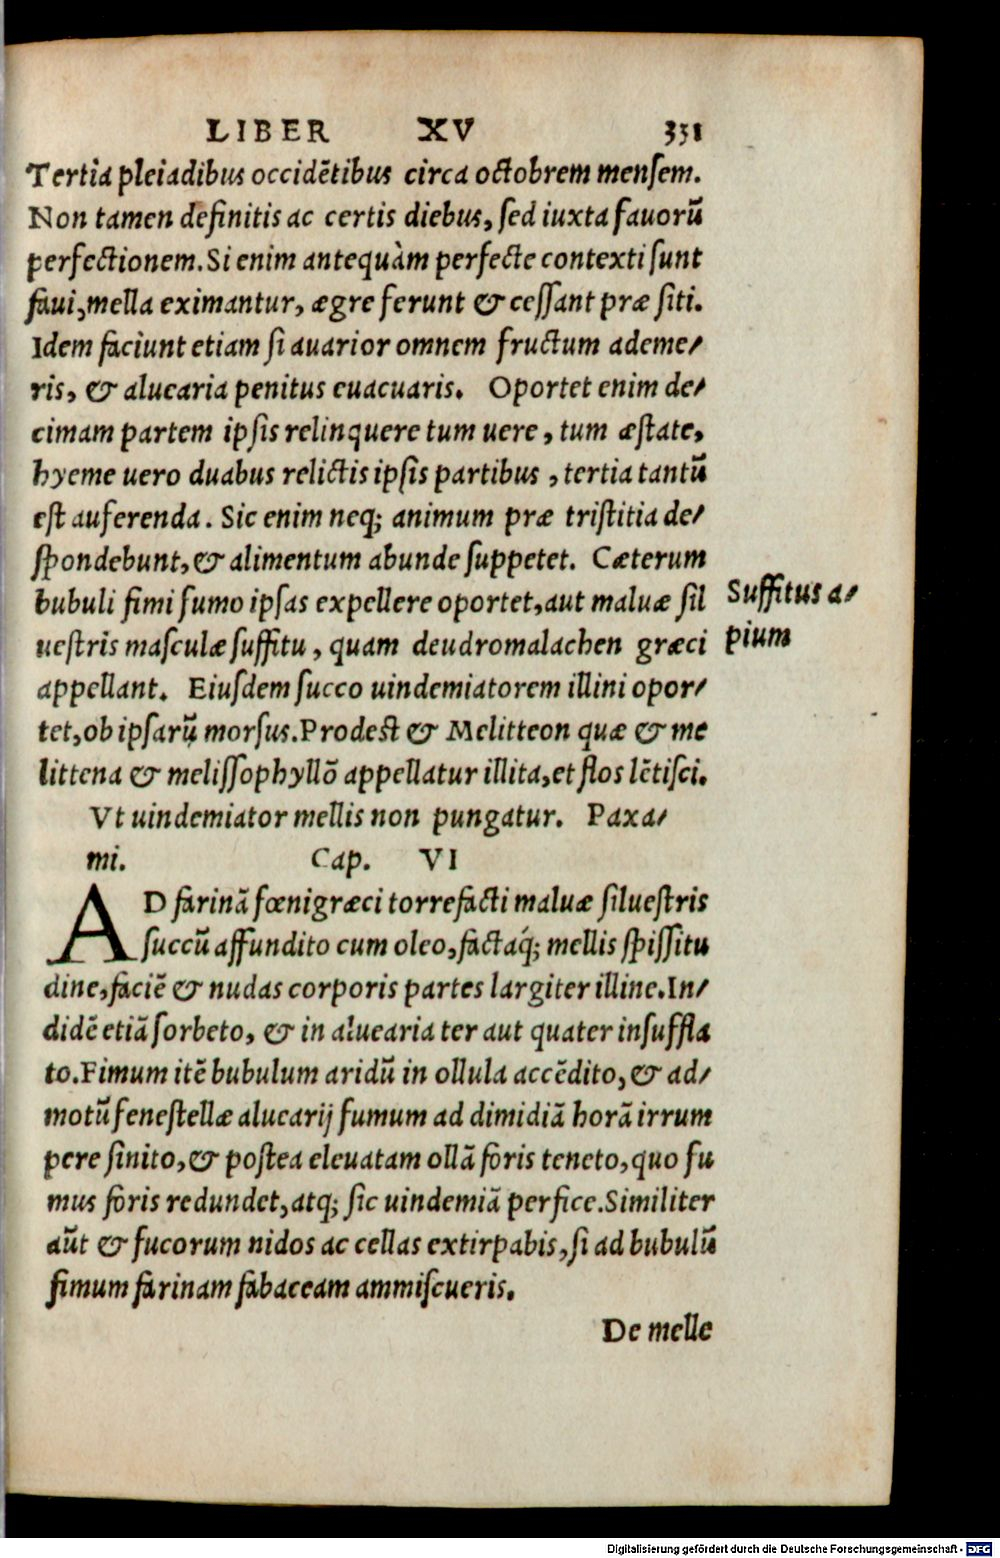 LIBER XV 331
Tertia pleiadibus occidētibus circa octobrem mensem.
Non tamen definitis ac certis diebus, sed iuxta fauorũ
perfectionem. Si enim antequàm perfecte contexti sunt
faui, mella eximantur, ægre ferunt & cessant præ siti.
Idem faciunt etiam si auarior omnem fructum ademe/
ris, & aluearia penitus euacuaris. Oportet enim de/
cimam partem ipsis relinquere tum uere, tum æstate,
hyeme uero duabus relictis ipsis partibus, tertia tantũ
est auferenda. Sic enim neq; animum præ tristitia de/
spondebunt, & alimentum abunde suppetet. Cæterum
bubuli fimi fumo ipsas expellere oportet, aut maluæ sil
uestris masculæ suffitu, quam deudromalachen græci
appellant. Eiusdem succo uindemiatorem illini opor/
tet, ob ipsarũ morsus. Prodest & Melitteon quæ & me
littena & melissophyllõ appellatur illita, et flos lētisci.
Suffitus a/
pium
Vt uindemiator mellis non pungatur. Paxa/
mi. Cap. VI
AD farinã fœnigræci torrefacti maluæ siluestris
succũ affundito cum oleo, factaq́; mellis spissitu
dine, faciē & nudas corporis partes largiter illine. In/
didē etiã sorbeto, & in aluearia ter aut quater insuffla
to. Fimum itē bubulum aridũ in ollula accēdito, & ad/
motũ fenestellæ aluearij fumum ad dimidiã horã irrum
pere sinito, & postea eleuatam ollã foris teneto, quo fu
mus foris redundet, atq; sic uindemiã perfice. Similiter
aũt & fucorum nidos ac cellas extirpabis, si ad bubulũ
fimum farinam fabaceam ammiscueris.
De melle
Digitalisierung gefördert durch die Deutsche Forschungsgemeinschaft - DFG